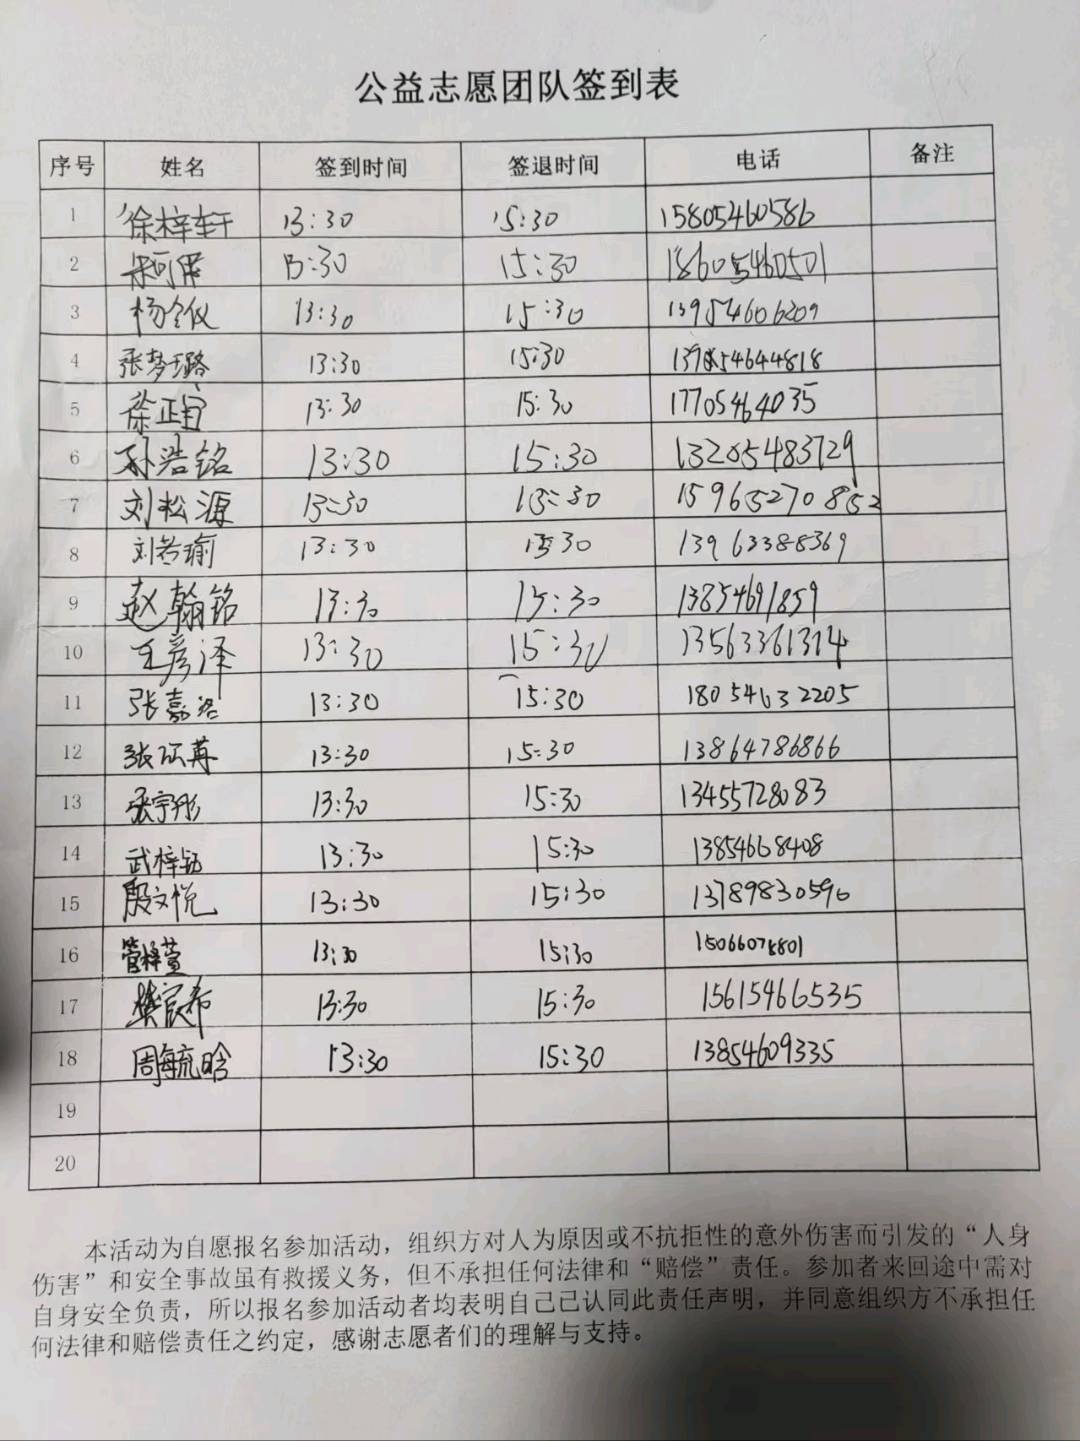 公益志愿团队签到表
序号 姓名 签到时间 签退时间 电话 备注
1 徐梓轩 13:30 15:30 15805460586
2 13:30 15:30 18605460501
3 杨令仪 13:30 15:30 13954606209
4 张梦璐 13:30 15:30
5 徐正宜 13:30 15:30 17705464035
6 孙浩铭 13:30 15:30
7 刘松源 13:30 15:30 15965270852
8 刘若瑜 13:30 15:30 13963388369
9 赵翰铭 13:30 15:30 13854691859
10 王彦泽 13:30 15:30 13563361314
11 张嘉洺 13:30 15:30 18054632205
12 13:30 15:30 13864786866
13 张宇彤 13:30 15:30 13455728083
14 武梓钰 13:30 15:30 13854668408
15 殷文悦 13:30 15:30 13789830590
16 管梓萱 13:30 15:30
17 樊宸希 13:30 15:30 15615466535
18 周毓晗 13:30 15:30 13854609335
19
20
本活动为自愿报名参加活动，组织方对人为原因或不抗拒性的意外伤害而引发的“人身
伤害”和安全事故虽有救援义务，但不承担任何法律和“赔偿”责任。参加者来回途中需对
自身安全负责，所以报名参加活动者均表明自己已认同此责任声明，并同意组织方不承担任
何法律和赔偿责任之约定，感谢志愿者们的理解与支持。